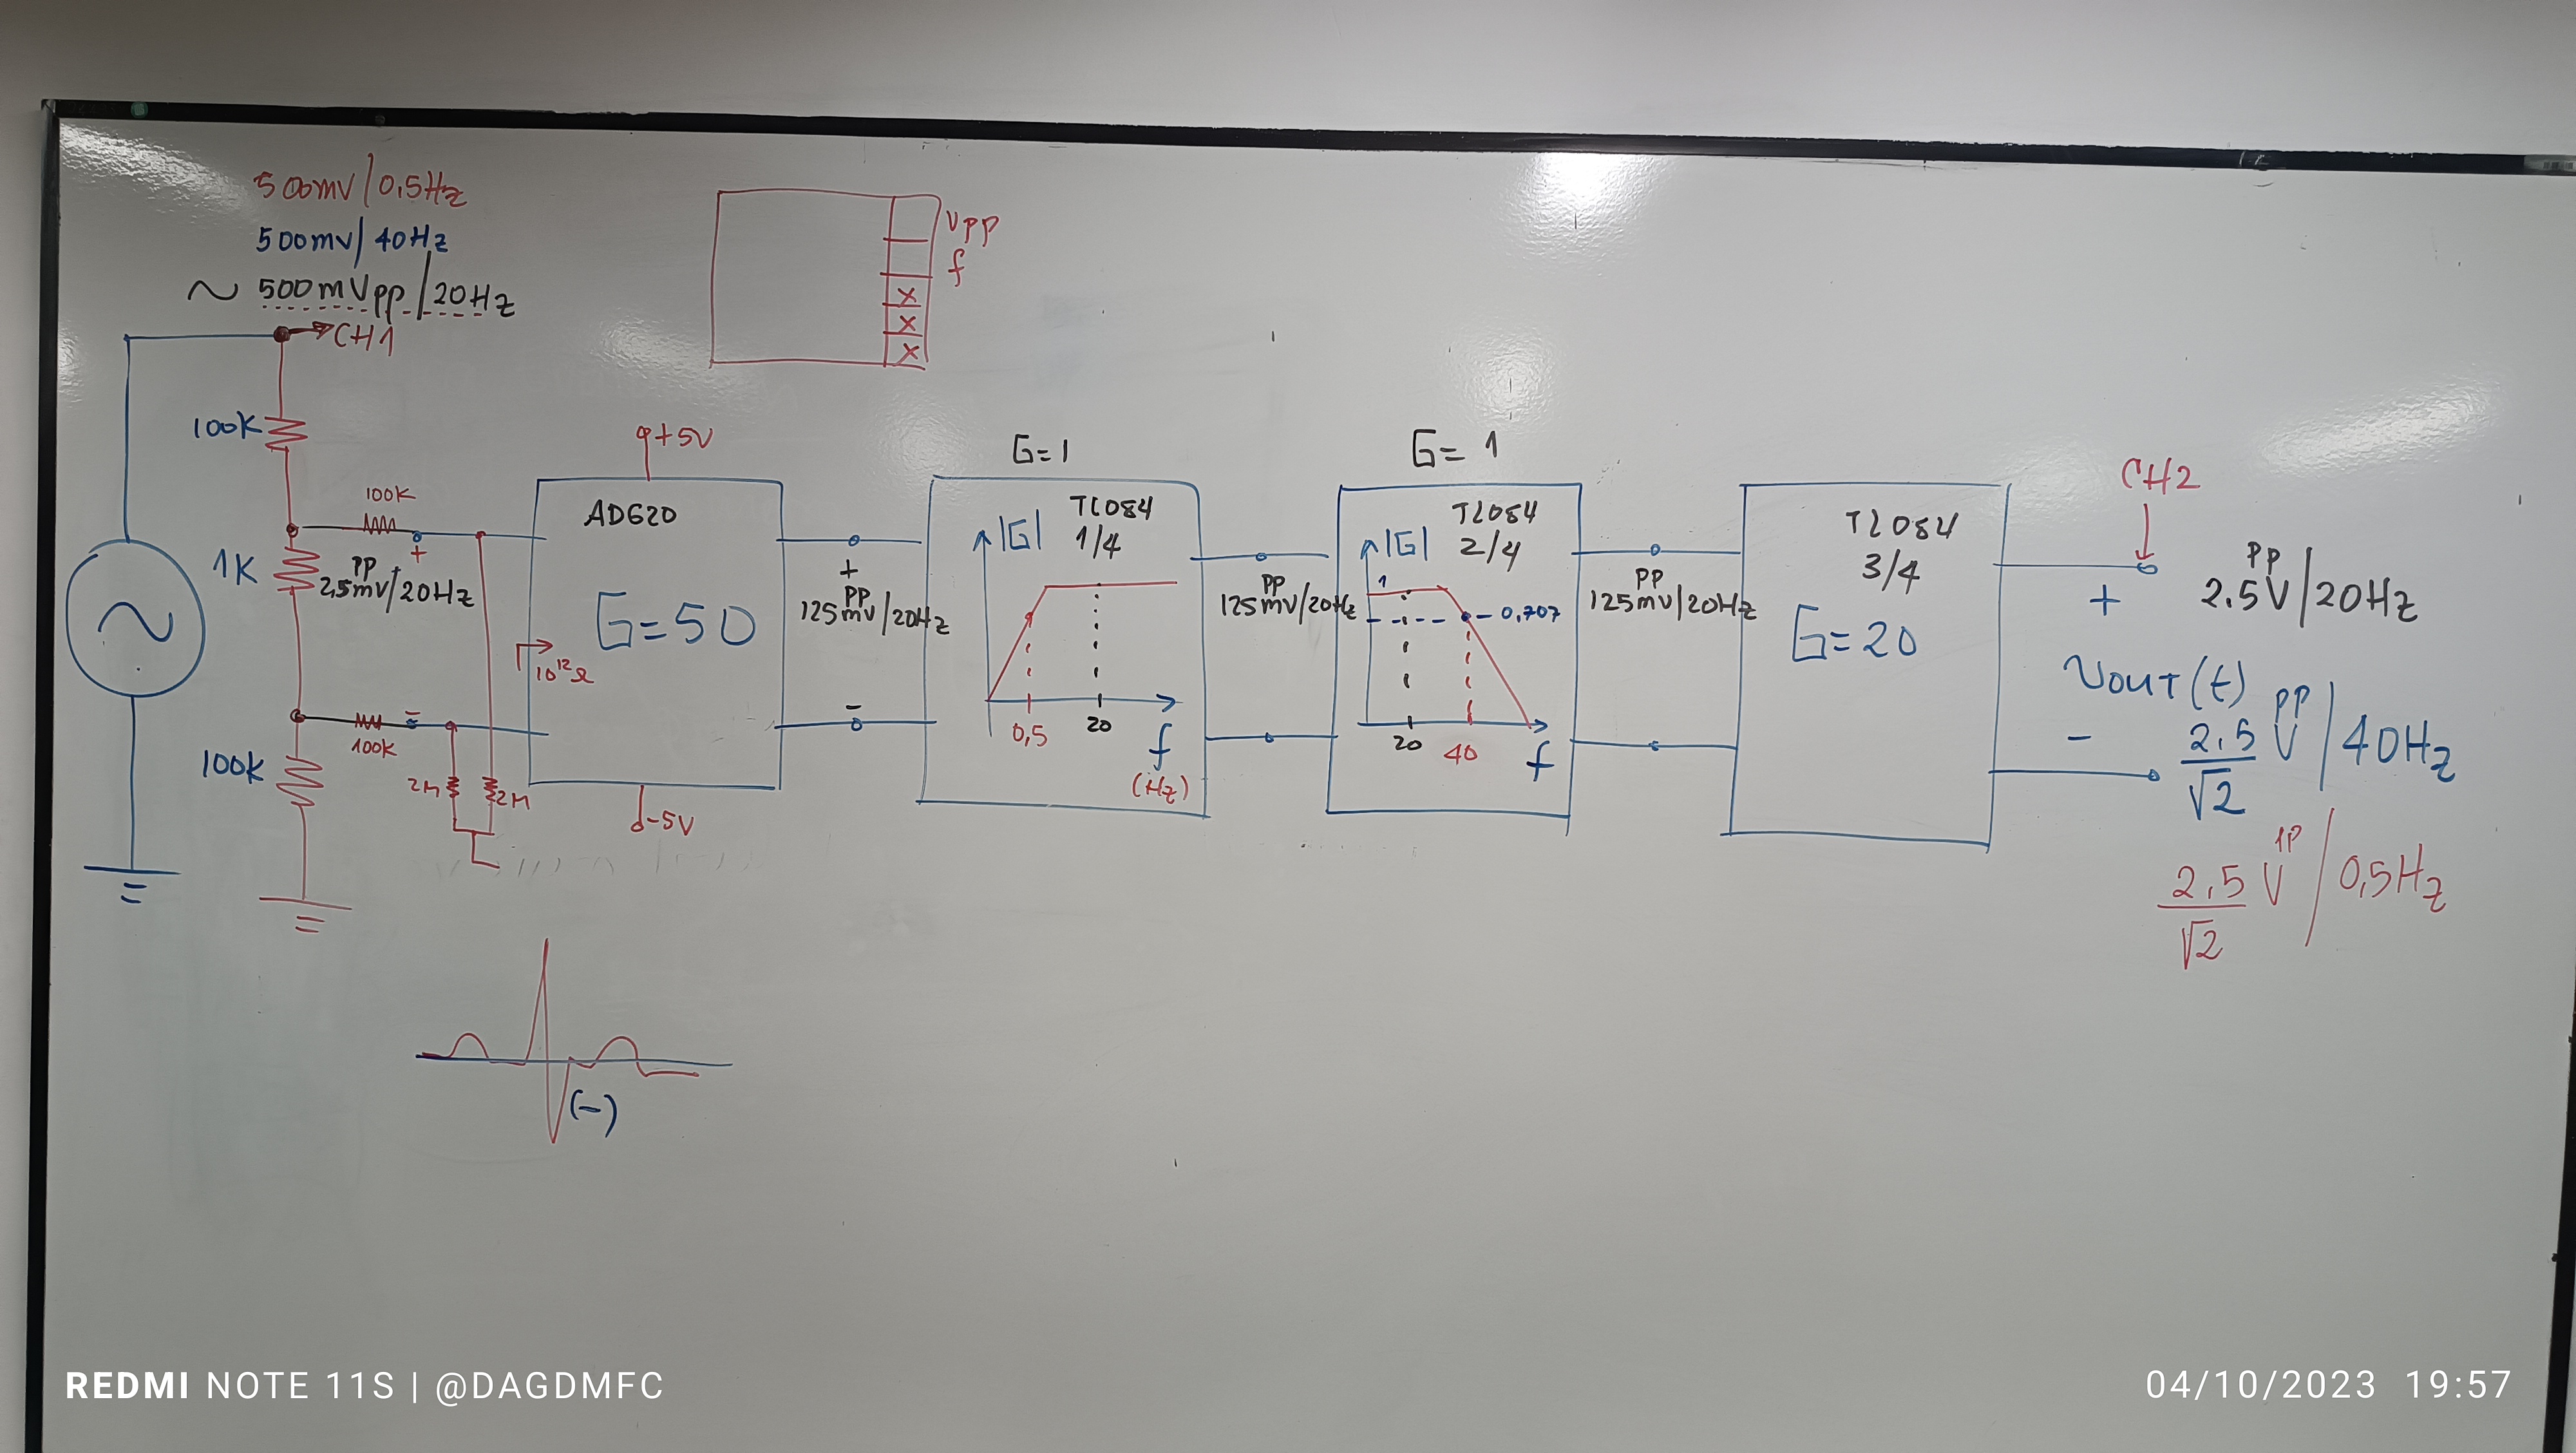 500mV/0,5Hz
500mV/40Hz
~ 500mVpp/20Hz
CH1
Vpp
f
x
x
x
100K
1K
100K
100K
+
PP
2,5mV/20Hz
=
100K
2M
2M
+5V
AD620
G=50
10¹²Ω
-5V
+
PP
125mV/20Hz
-
G=1
|G|
TL084
1/4
0,5
20
f
(Hz)
PP
125mV/20Hz
G= 1
|G|
TL084
2/4
1
0,707
20
40
f
PP
125mV/20Hz
TL084
3/4
G=20
CH2
+
PP
2.5V/20Hz
VOUT(t)
-
PP
2,5/√2 V/40Hz
PP
2,5/√2 V/0,5Hz
(-)
REDMI NOTE 11S | @DAGDMFC
04/10/2023 19:57